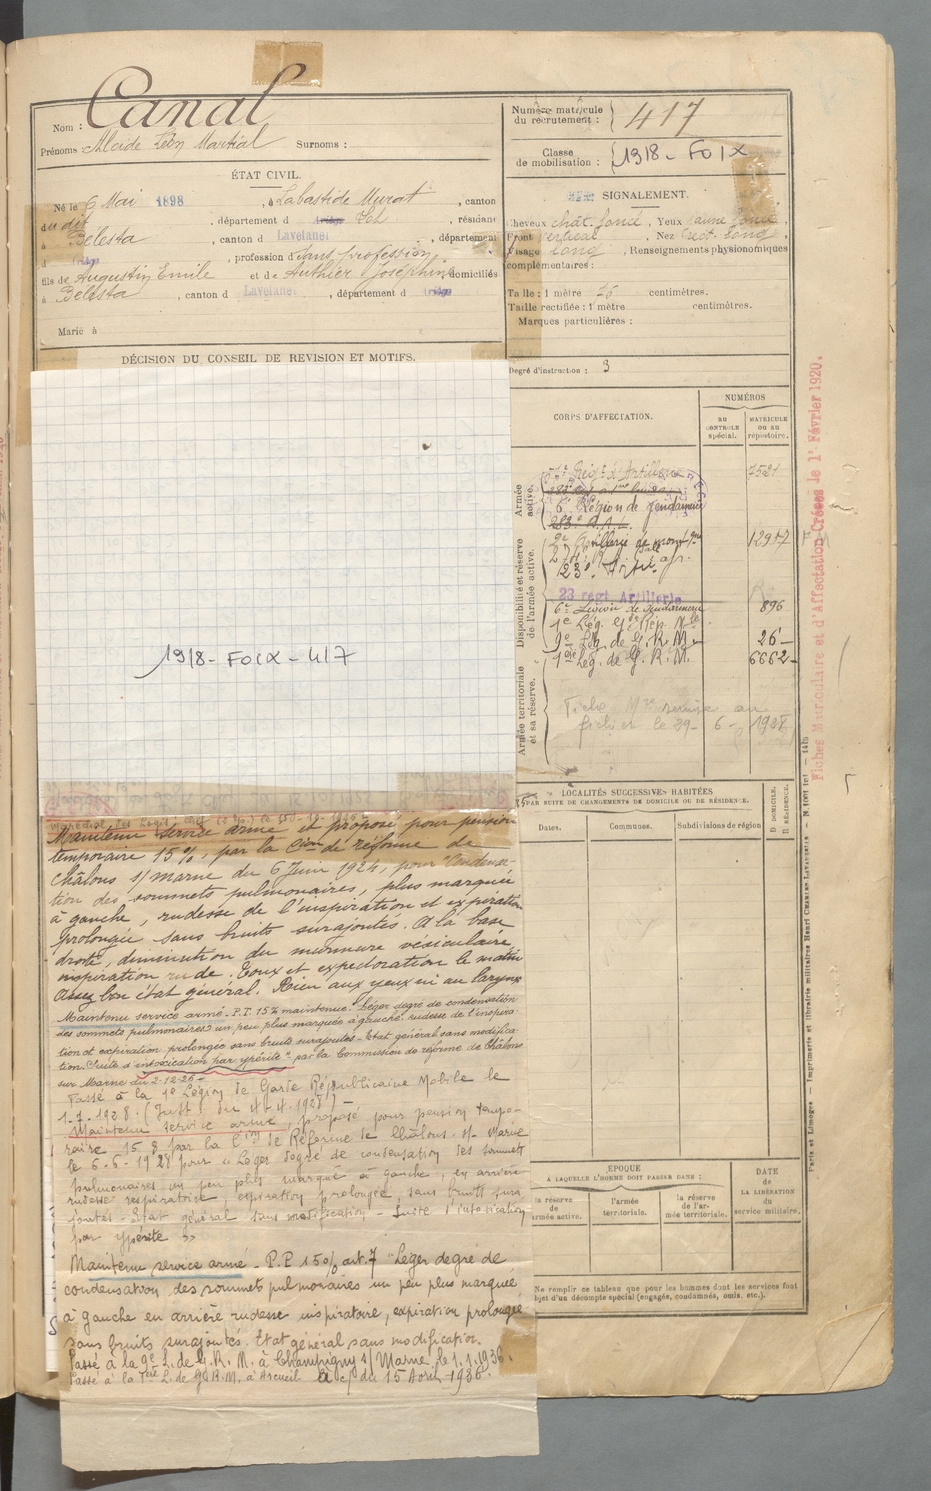 Nom : Canal
Prénoms : Alcide Léon Martial Surnoms :
Numéro matricule du recrutement : 417
Classe de mobilisation : 1918 - FOIX
ÉTAT CIVIL.
Né le 6 Mai 1898, à Labastide Murat, canton
du dit, département d Lot, résidant
à Bélesta, canton d Lavelanet, département
d Ariège, profession d sans profession
fils de Augustin Emile et de Authier Joséphine domiciliés
à Bélesta, canton d Lavelanet, département d Ariège
Marié à
SIGNALEMENT.
Cheveux chât. foncé, Yeux jaune foncé,
Front vertical, Nez rect. long,
Visage long, Renseignements physionomiques
complémentaires :
Taille : 1 mètre 76 centimètres.
Taille rectifiée : 1 mètre centimètres.
Marques particulières :
Degré d'instruction : 3
DÉCISION DU CONSEIL DE REVISION ET MOTIFS.
1918 - FOIX - 417
Maintenu service armé et proposé pour pension
temporaire 15%, par la Cion de réforme de
Châlons s/ Marne du 6 Juin 1924, pour "Condensa-
tion des sommets pulmonaires, plus marquée
à gauche, rudesse de l'inspiration et expiration
prolongée sans bruits surajoutés. A la base
droite, diminution du murmure vésiculaire,
inspiration rude. Toux et expectoration le matin
Assez bon état général. Rien aux yeux ni au larynx
Maintenu service armé - P.T. 15% maintenue. Léger degré de condensation
des sommets pulmonaires un peu plus marquée à gauche rudesse de l'inspira-
tion et expiration prolongée sans bruits surajoutés - Etat général sans modifica-
tion. Suite d'intoxication par ypérite" par la Commission de réforme de Châlons
sur Marne du 2-12-26 -
Passé à la 1e Légion de Garde Républicaine Mobile le
1.7.1928. (Inst. du 4-4-1928) -
Maintenu service armé, proposé pour pension tempo-
raire 15 % par la Cion de Réforme de Châlons s/- Marne
le 6-6-1928 pour "Léger degré de condensation des sommets
pulmonaires un peu plus marqué à gauche, en arrière
rudesse respiratoire, expiration prolongée, sans bruits sura-
joutés - Etat général sans modification - Suite d'intoxication
par ypérite"
Maintenu service armé - P.P 15% art. 7 "Léger degré de
condensation des sommets pulmonaires un peu plus marquée
à gauche en arrière rudesse inspiratoire, expiration prolongée
sans bruits surajoutés. Etat général sans modification.
Passé à la 9e L. de G. R. M. à Champigny s/ Marne le 1.1.1936.
Passé à la 1ère L. de G.R.M. à Arcueil à c/ du 15 Avril 1936.
CORPS D'AFFECTATION.
NUMÉROS
AU CONTROLE spécial.
MATRICULE OU AU répertoire.
Armée active.
Régt d'Artillerie 7521
6e Légion de gendarmerie
283e R.A.L.
Disponibilité et réserve de l'armée active.
12917
23 régt Artillerie
6e Légion de Gendarmerie 896
1e Lég. de G. Rép. Mle
9e Lég. de G. R. M. 26
1ère Lég. de G. R. M. 6662
Armée territoriale et sa réserve.
Fiche Mle remise au
fichier le 29-6-1928
LOCALITÉS SUCCESSIVES HABITÉES
PAR SUITE DE CHANGEMENTS DE DOMICILE OU DE RÉSIDENCE.
Dates. Communes. Subdivisions de région D DOMICILE. R RÉSIDENCE.
ÉPOQUE
A LAQUELLE L'HOMME DOIT PASSER DANS :
la réserve de l'armée active. l'armée territoriale. la réserve de l'armée territoriale.
DATE de LA LIBÉRATION du service militaire.
Ne remplir ce tableau que pour les hommes dont les services font
objet d'un décompte spécial (engagés, condamnés, omis, etc.).
Fiches Matriculaire et d'Affectation Créées le 1er Février 1920.
Paris et Limoges - Imprimerie et librairie militaires Henri CHARLES-LAVAUZELLE